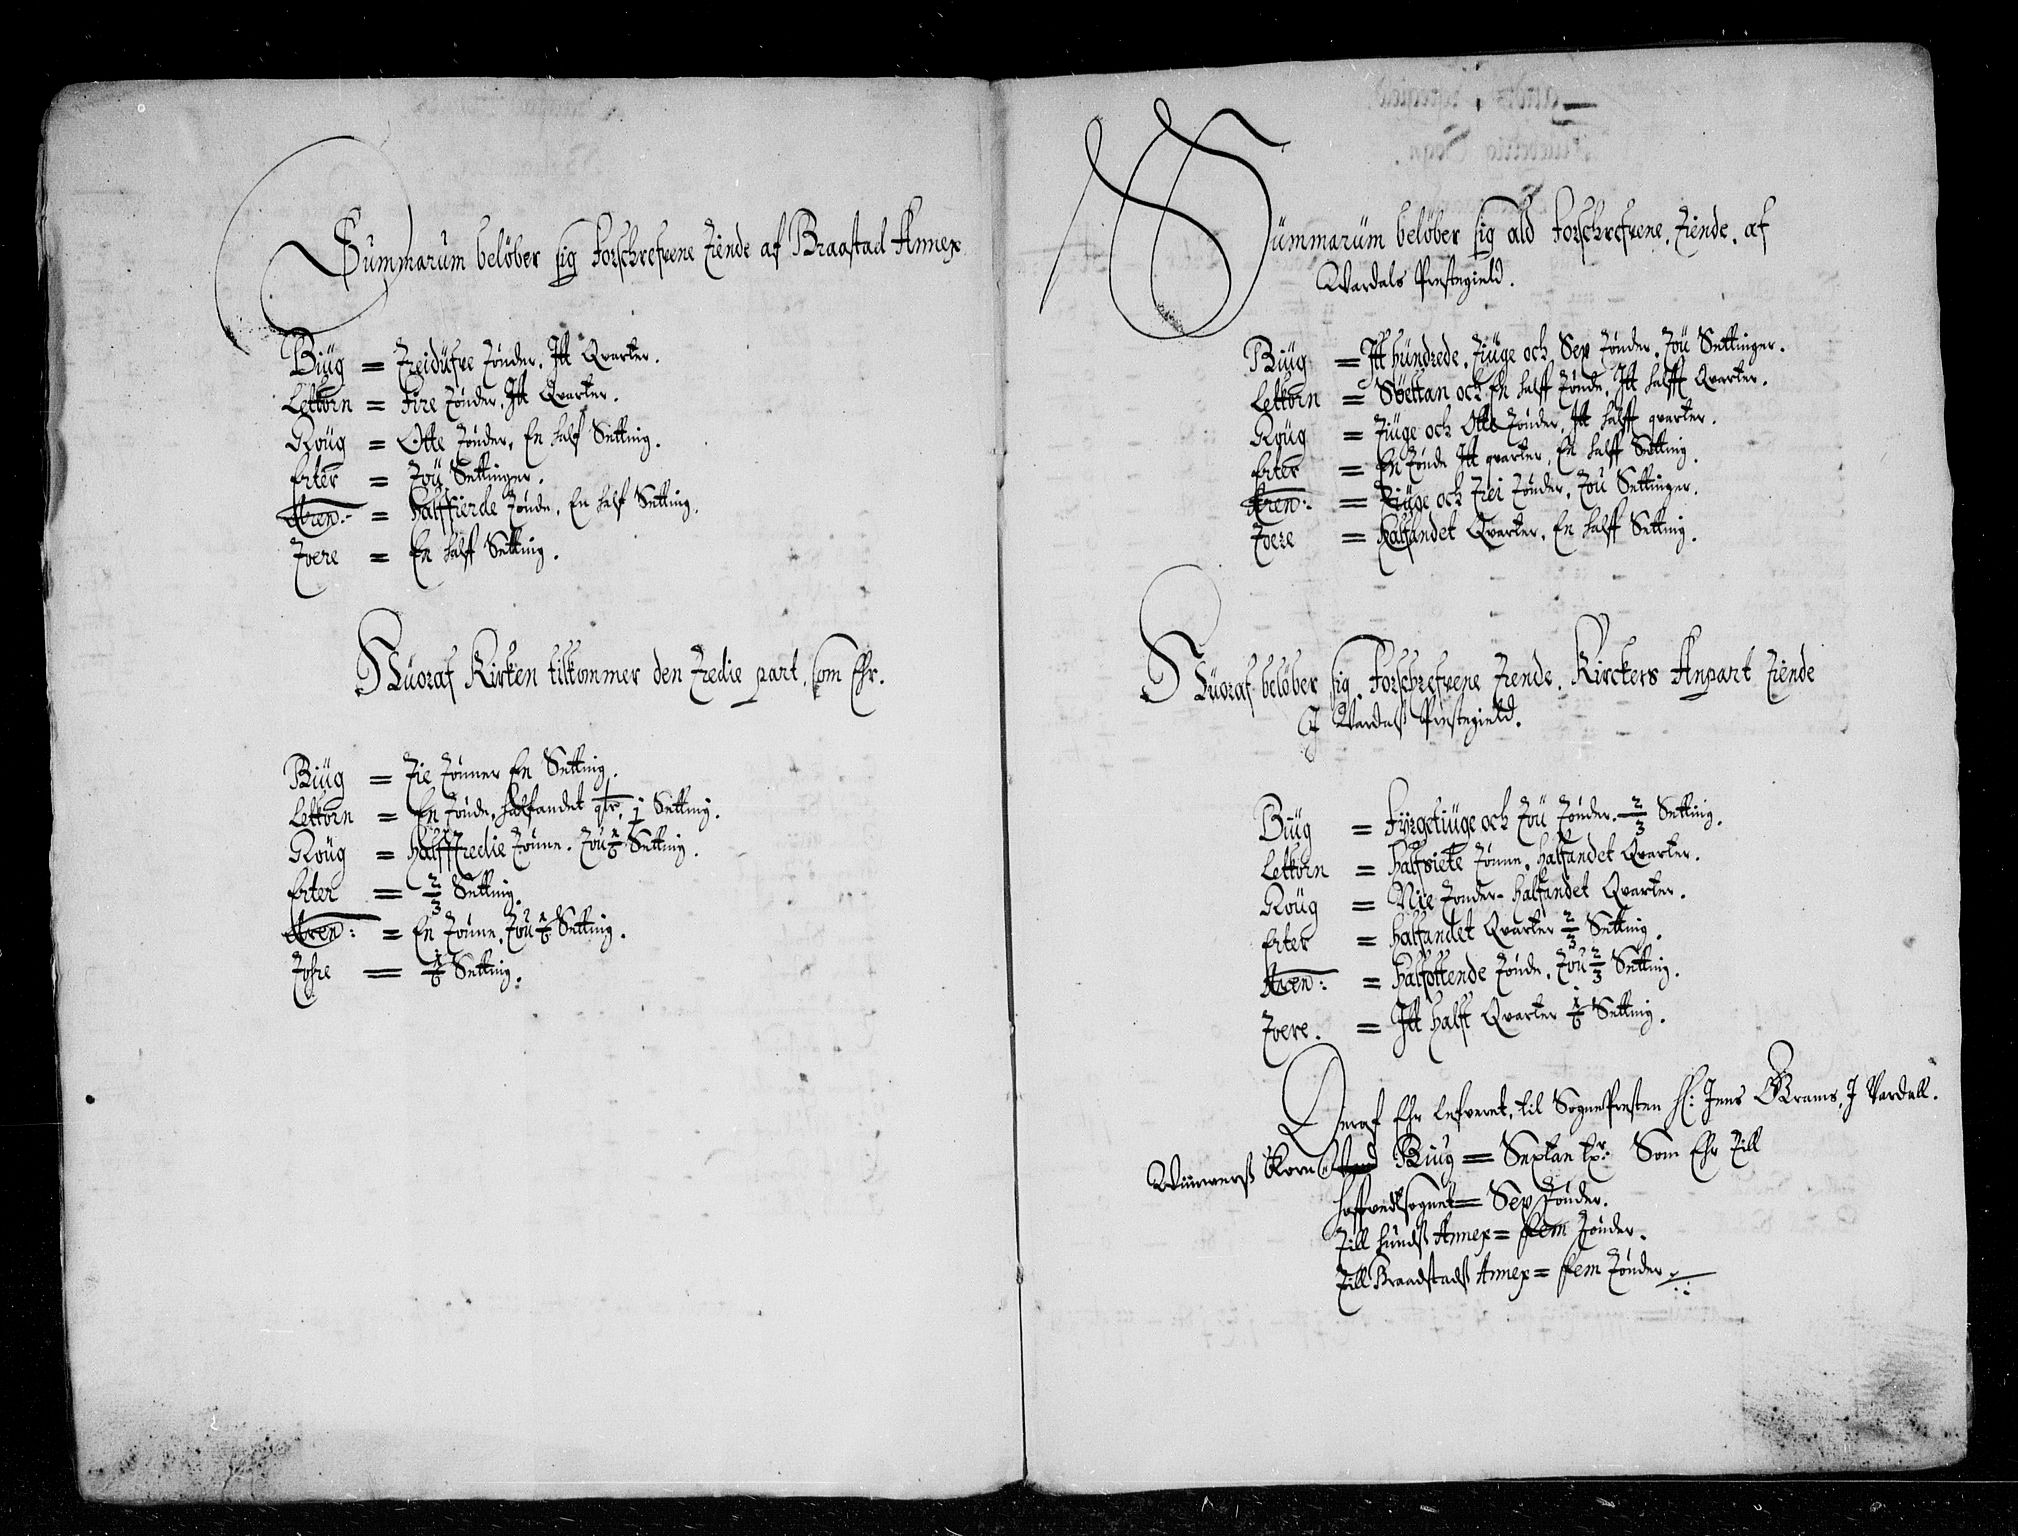 Summarum beløber sig forschrefvene Tiende af Braastad Annex
Biüg = Treidüfve Tønder, Itt Qvarter.
Letkorn = Fire Tønder, Itt Qvarter.
Roüg = Otte Tønder, En half Setting.
Erter = Toü Settinger.
Aren:- = Halffierde Tønde, En half Setting.
Joere = En halff Setting.
Huoraf Kirken tilkommer den Tredie part, som Ehr.
Biüg = Tie Tønner En Setting.
Letkorn = En Tønde, halfandet qtr, Setting.
Roüg = HalffTredie Tønne. Toü 1/6 Setting.
Erter = 2/3 Setting.
Aren: = En Tønne, Toü 1/6 Setting.
= 1/6 Setting:
Summarüm beløber sig ald forschrefvene, Tiende, af
Wardals Prestegield.
Biüg = Itt hündrede, Tiüge och Sex Tønder, Toü Settinger.
Letkorn = Søttan och En halff Tønde, Itt halfft Qvarter.
Roüg = Tiüge och Otte Tønder, Itt halfft qvarter.
Erter = En Tønde Itt qvarter, En halff Setting.
Aren: = Tiüge och Trei Tønder, Toü Settinger.
Joere = Halfandet Qvarter, En halff Setting.
Hüoraf beløber sig, forschrefvene Tiende, Kirckers Anpart Tiende
I Wardalß Prestegield.
Biüg = Fyrgetiüge och Toü Tønder. 2/3 Setting.
Letkorn = Halfsiete Tønne, halfandet Qvarter.
Roüg = Nie Tønder - halfandet Qvarter.
Erter = Halfandet Qvarter 2/3 Setting.
Aren: = Halfottende Tønde, Toü 2/3 Setting.
Joere. = Itt halfft Qvarter 1/6 Setting.
Deraf Ehr lefveret, til SognePresten H: Jens Krams, I Vardall.
Biüg = Sextan tr: Som Ehr Till
hoffvedsognet = Sex Tønder.
Till Hündß Annex = fem Tønder.
Till Braadstadß Annex = fem Tønder